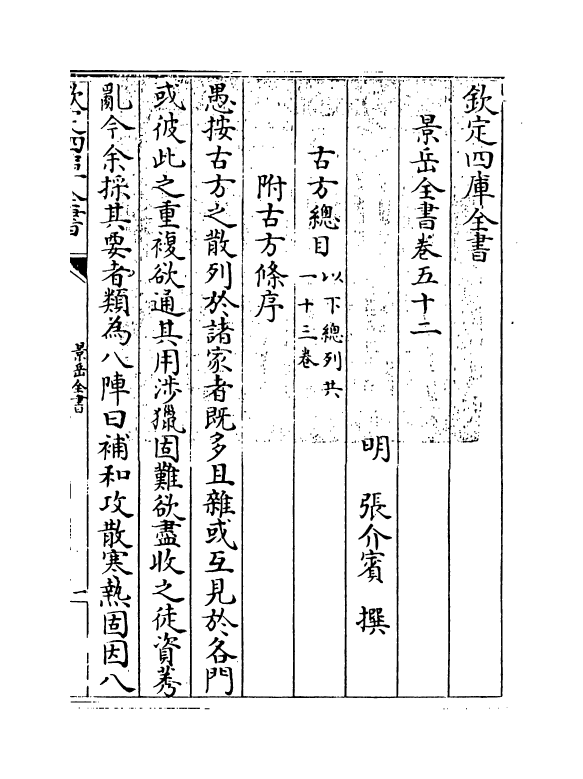 欽定四庫全書
景岳全書卷五十二
明 張介賓 撰
古方總目以下總列共一十三卷
附古方條序
愚按古方之散列於諸家者既多且雜或互見於各門
或彼此之重複欲通其用涉獵固難欲盡收之徒資莠
亂今余採其要者類為八陣曰補和攻散寒熱固因八
欽定四庫全書
景岳全書
一